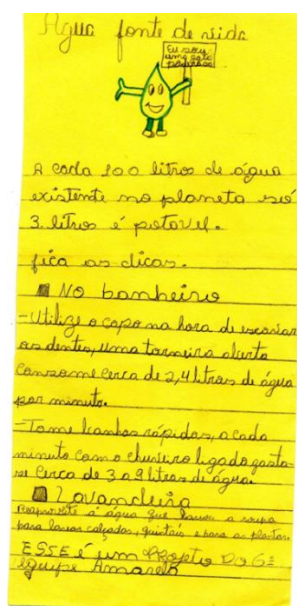 Água fonte de vida
Eu sou
uma gota
A cada 100 litros de água
existente no planeta só
3 litros é potavel.
fica as dicas.
No banheiro
-Utilize o copo na hora de escovar
os dentes, uma torneira aberta
consome cerca de 2,4 litros de água
por minuto.
-Tome banhos rápidos, a cada
minuto com o chuveiro ligado gasta-
se cerca de 3 a 9 litros de água.
Lavanderia
Reaproveite a água que lavou a roupa
para lavar calçados, quintais e para as plantas.
ESSE é um Projeto DO 6º
equipe Amarela